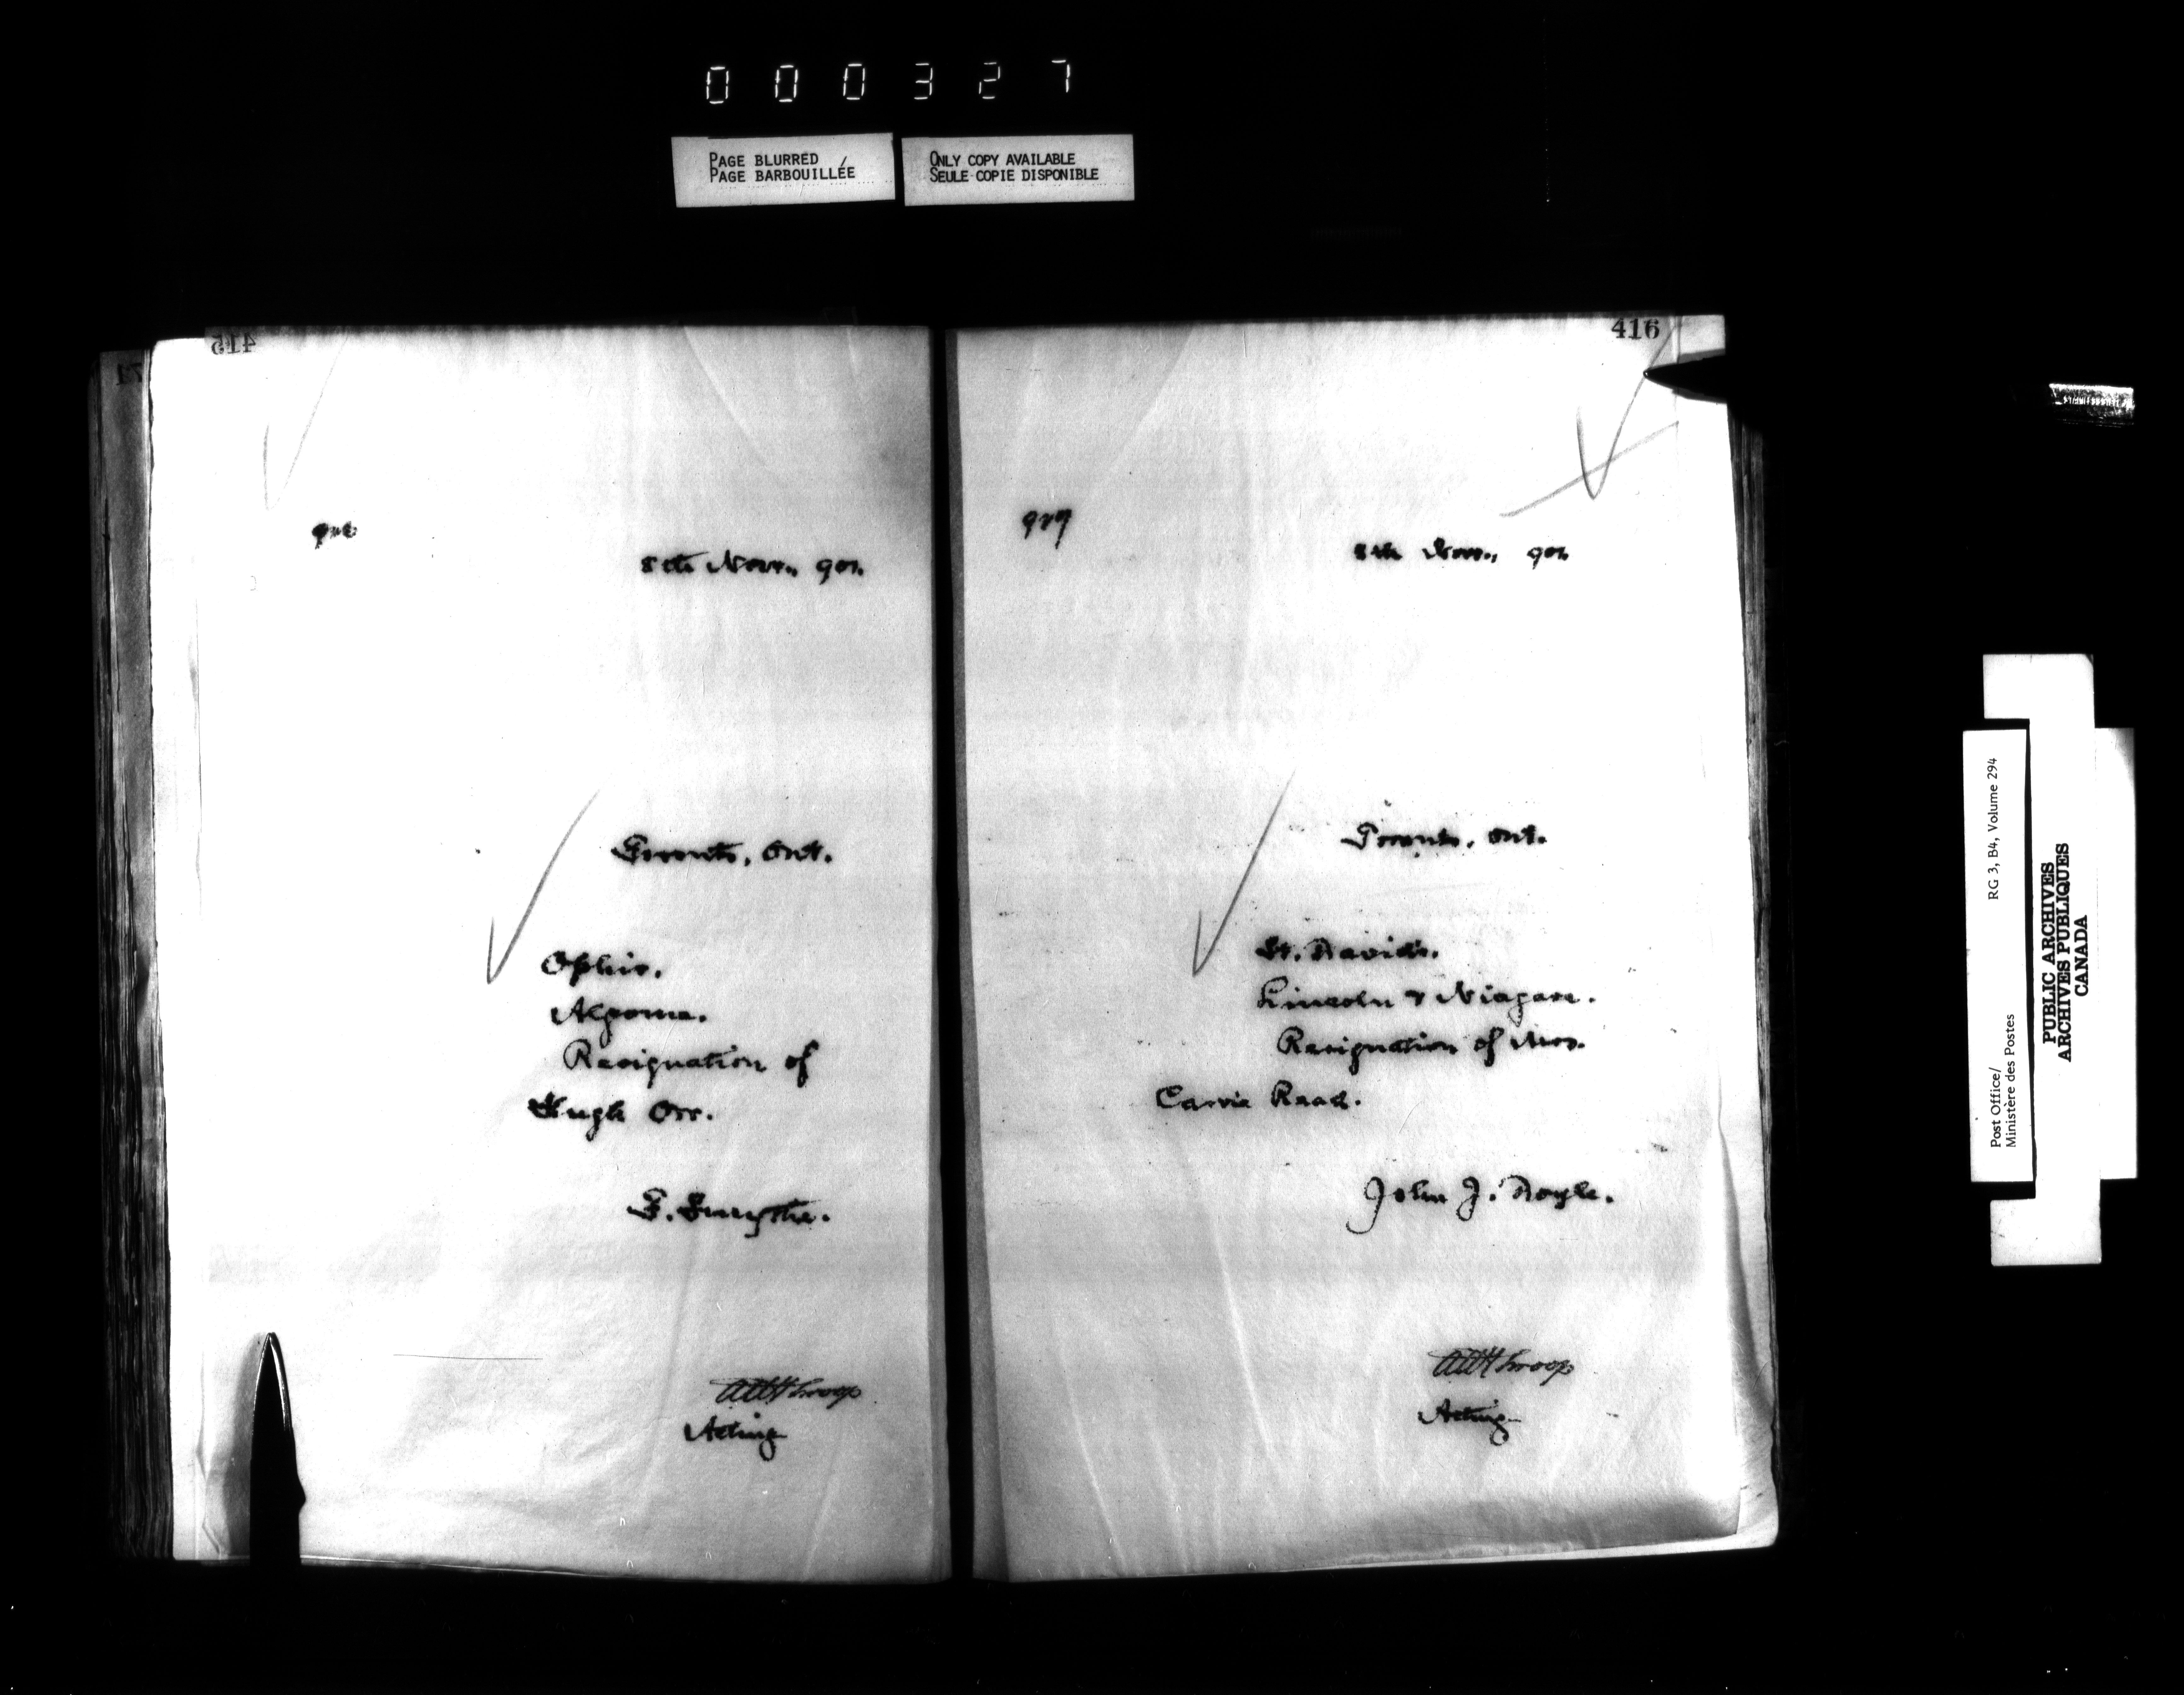 000327
PAGE BLURRED
PAGE BARBOUILLÉE
ONLY COPY AVAILABLE
SEULE COPIE DISPONIBLE
415
8th Novr., 901.
Toronto, Ont.
Ophir.
Algoma.
Resignation of
Hugh Orr.
G. Smythe.
Acting
416
927
8th Novr., 901
Toronto, Ont.
St. David's.
Lincoln & Niagara.
Resignation of Mrs.
Carrie Read.
John J. Doyle.
Acting
Post Office/ RG 3, B4, Volume 294
Ministère des Postes
PUBLIC ARCHIVES
ARCHIVES PUBLIQUES
CANADA